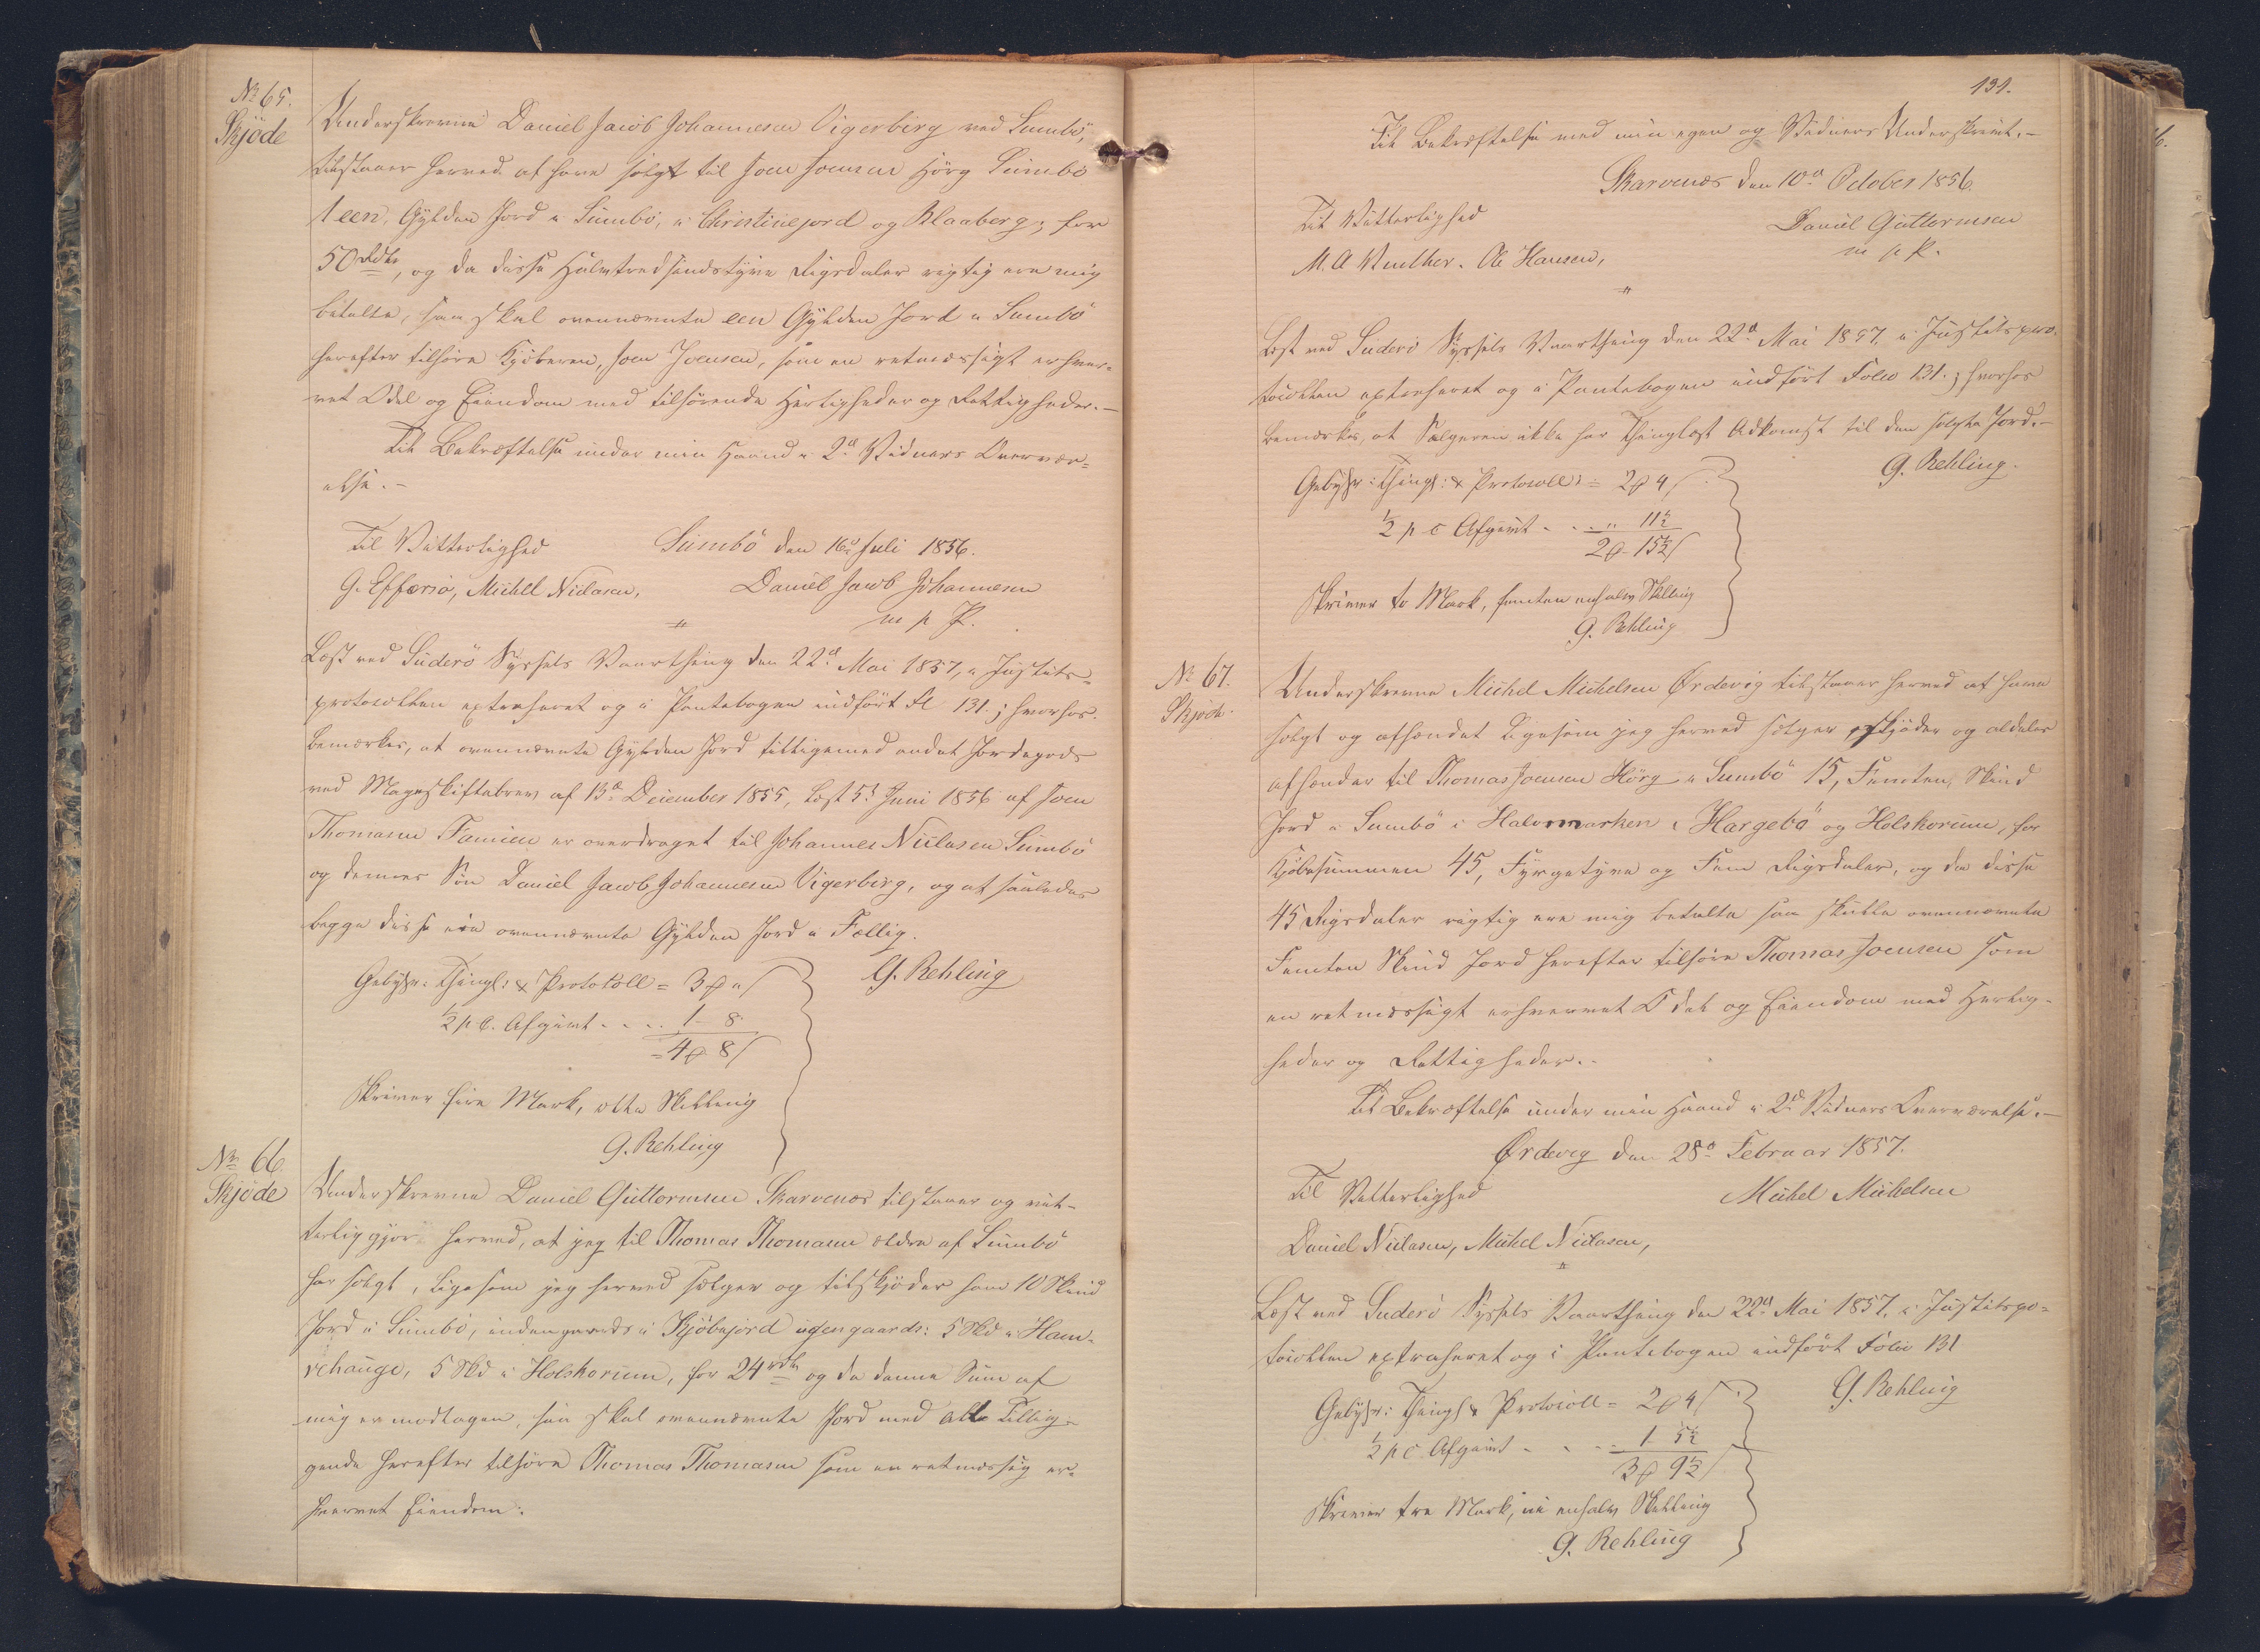 No 65.
Skjöde
Underskrevne Daniel Jacob Johannesen Vigerberg ved Sumbö,
tilstaaer herved at have solgt til Joen Joensen Hörg Sumbö
1 een, Gylden Jord i Sumbö, i Christinejord og Blaaberg; for
50 Rdlr, og da disse Halvtredsindstyve Rigsdaler rigtig ere mig
betalte, saa skal ovennævnte een Gylden Jord i Sumbö
herefter tilhöre Kjöberen, Joen Joensen, som en retmæssigt erhver-
vet Odel og Eiendom med tilhörende Herligheder og Rettigheder.—
Til Bekræftelse under min Haand i 2de Vidners Overvær-
else.—
Til Vitterlighed
Sumbö den 16de Juli 1856.
G. Effersö, Michel Niclasen,
Daniel Jacob Johannesen
m p P.
Læst ved Suderö Syssels Vaarthing den 22de Mai 1857, i Justits-
protocollen extraheret og i Pantebogen indfört Fl 131.; hvorhos
bemærkes, at ovennævnte Gylden Jord tilligemed andet Jordegods
ved Mageskiftebrev af 13de December 1855, læst 5te Juni 1856 af Joen
Thomasen Famien er overdraget til Johannes Niclasen Sumbö
og dennes Sön Daniel Jacob Johannesen Vigerberg, og at saaledes
begge disse eie ovennævnte Gylden Jord i Fællig.
G. Rehling
Gebyhr: Thingl: & Protokoll = 3 ₰ " ſ
½ p C. Afgivt - - . . 1 - 8
= 4 ₰ 8 ſ
Skriver fire Mark, otte Skilling
G. Rehling
No 66
Skjöde
Underskrevne Daniel Guttormsen Skarvenæs tilstaaer og vit-
terliggjör herved, at jeg til Thomas Thomasen ældre af Sumbö
har solgt, ligesom jeg herved sælger og tilskjöder ham 10 Skind
Jord i Sumbö, indengaards i Kjöbejord udengaards: 5 Skd i Ham-
rehauge, 5 Skd i Holskorum, for 24 rdlr og da denne Sum af
mig er modtagen, saa skal ovennævnte Jord med alt Tillig-
gende herefter tilhöre Thomas Thomasen som en retmæssig er-
hvervet Eiendom.
131.
Til Bekræftelse med min egen og Vidners Underskrivt.—
Skarvenæs den 10de October 1856.
Til Vitterlighed
Daniel Guttormsen
M. A Winther. Ole Hansen,
m p P.
Læst ved Suderö Syssels Vaarthing den 22de Mai 1857, i Justitspro-
tocollen extraheret og i Pantebogen indfört Folio 131.; hvorhos
bemærkes, at Sælgeren ikke har Thinglæst Adkomst til den solgte Jord.—
G. Rehling.
Gebyhr: Thingl: & Protocoll: = 2 ₰ 4 ſ
½ p C Afgivt - . . " 11½
2 ₰ - 15½ ſ
Skriver to Mark, femten enhalv Skilling
G. Rehling
No 67.
Skjöde
Underskrevne Michel Michelsen Ördevig tilstaaer herved at have
solgt og afhændet ligesom jeg herved sælger, skjöder og aldeles
afhænder til Thomas Joensen Hörg i Sumbö 15, Femten, Skind
Jord i Sumbö i Halvmarken i Hargebö og Holskorum, for
Kjöbesummen 45, Fyrgetyve og Fem Rigsdaler, og da disse
45 Rigsdaler rigtig ere mig betalte saa skulle ovennævnte
Femten Skind Jord herefter tilhöre Thomas Joensen som
en retmæssigt erhvervet Odel og Eiendom med Herlig-
heder og Rettigheder.—
Til Bekræftelse under min Haand i 2de Vidners Overværelse.—
Ördevig den 28de Februar 1857.
Til Vitterlighed
Michel Michelsen
Daniel Niclasen, Michel Niclasen,
Læst ved Suderö Syssels Vaarthing den 22de Mai 1857, i Justitspo-
tocollen extraheret og i Pantebogen indfört Folio 131
G. Rehling
Gebyhr: Thingl & Protocoll = 2 ₰ 4 ſ
½ p C. Afgivt - . . . 1 - 5½
3 ₰ 9½ ſ
Skriver tre Mark, ni enhalv Skilling
G. Rehling